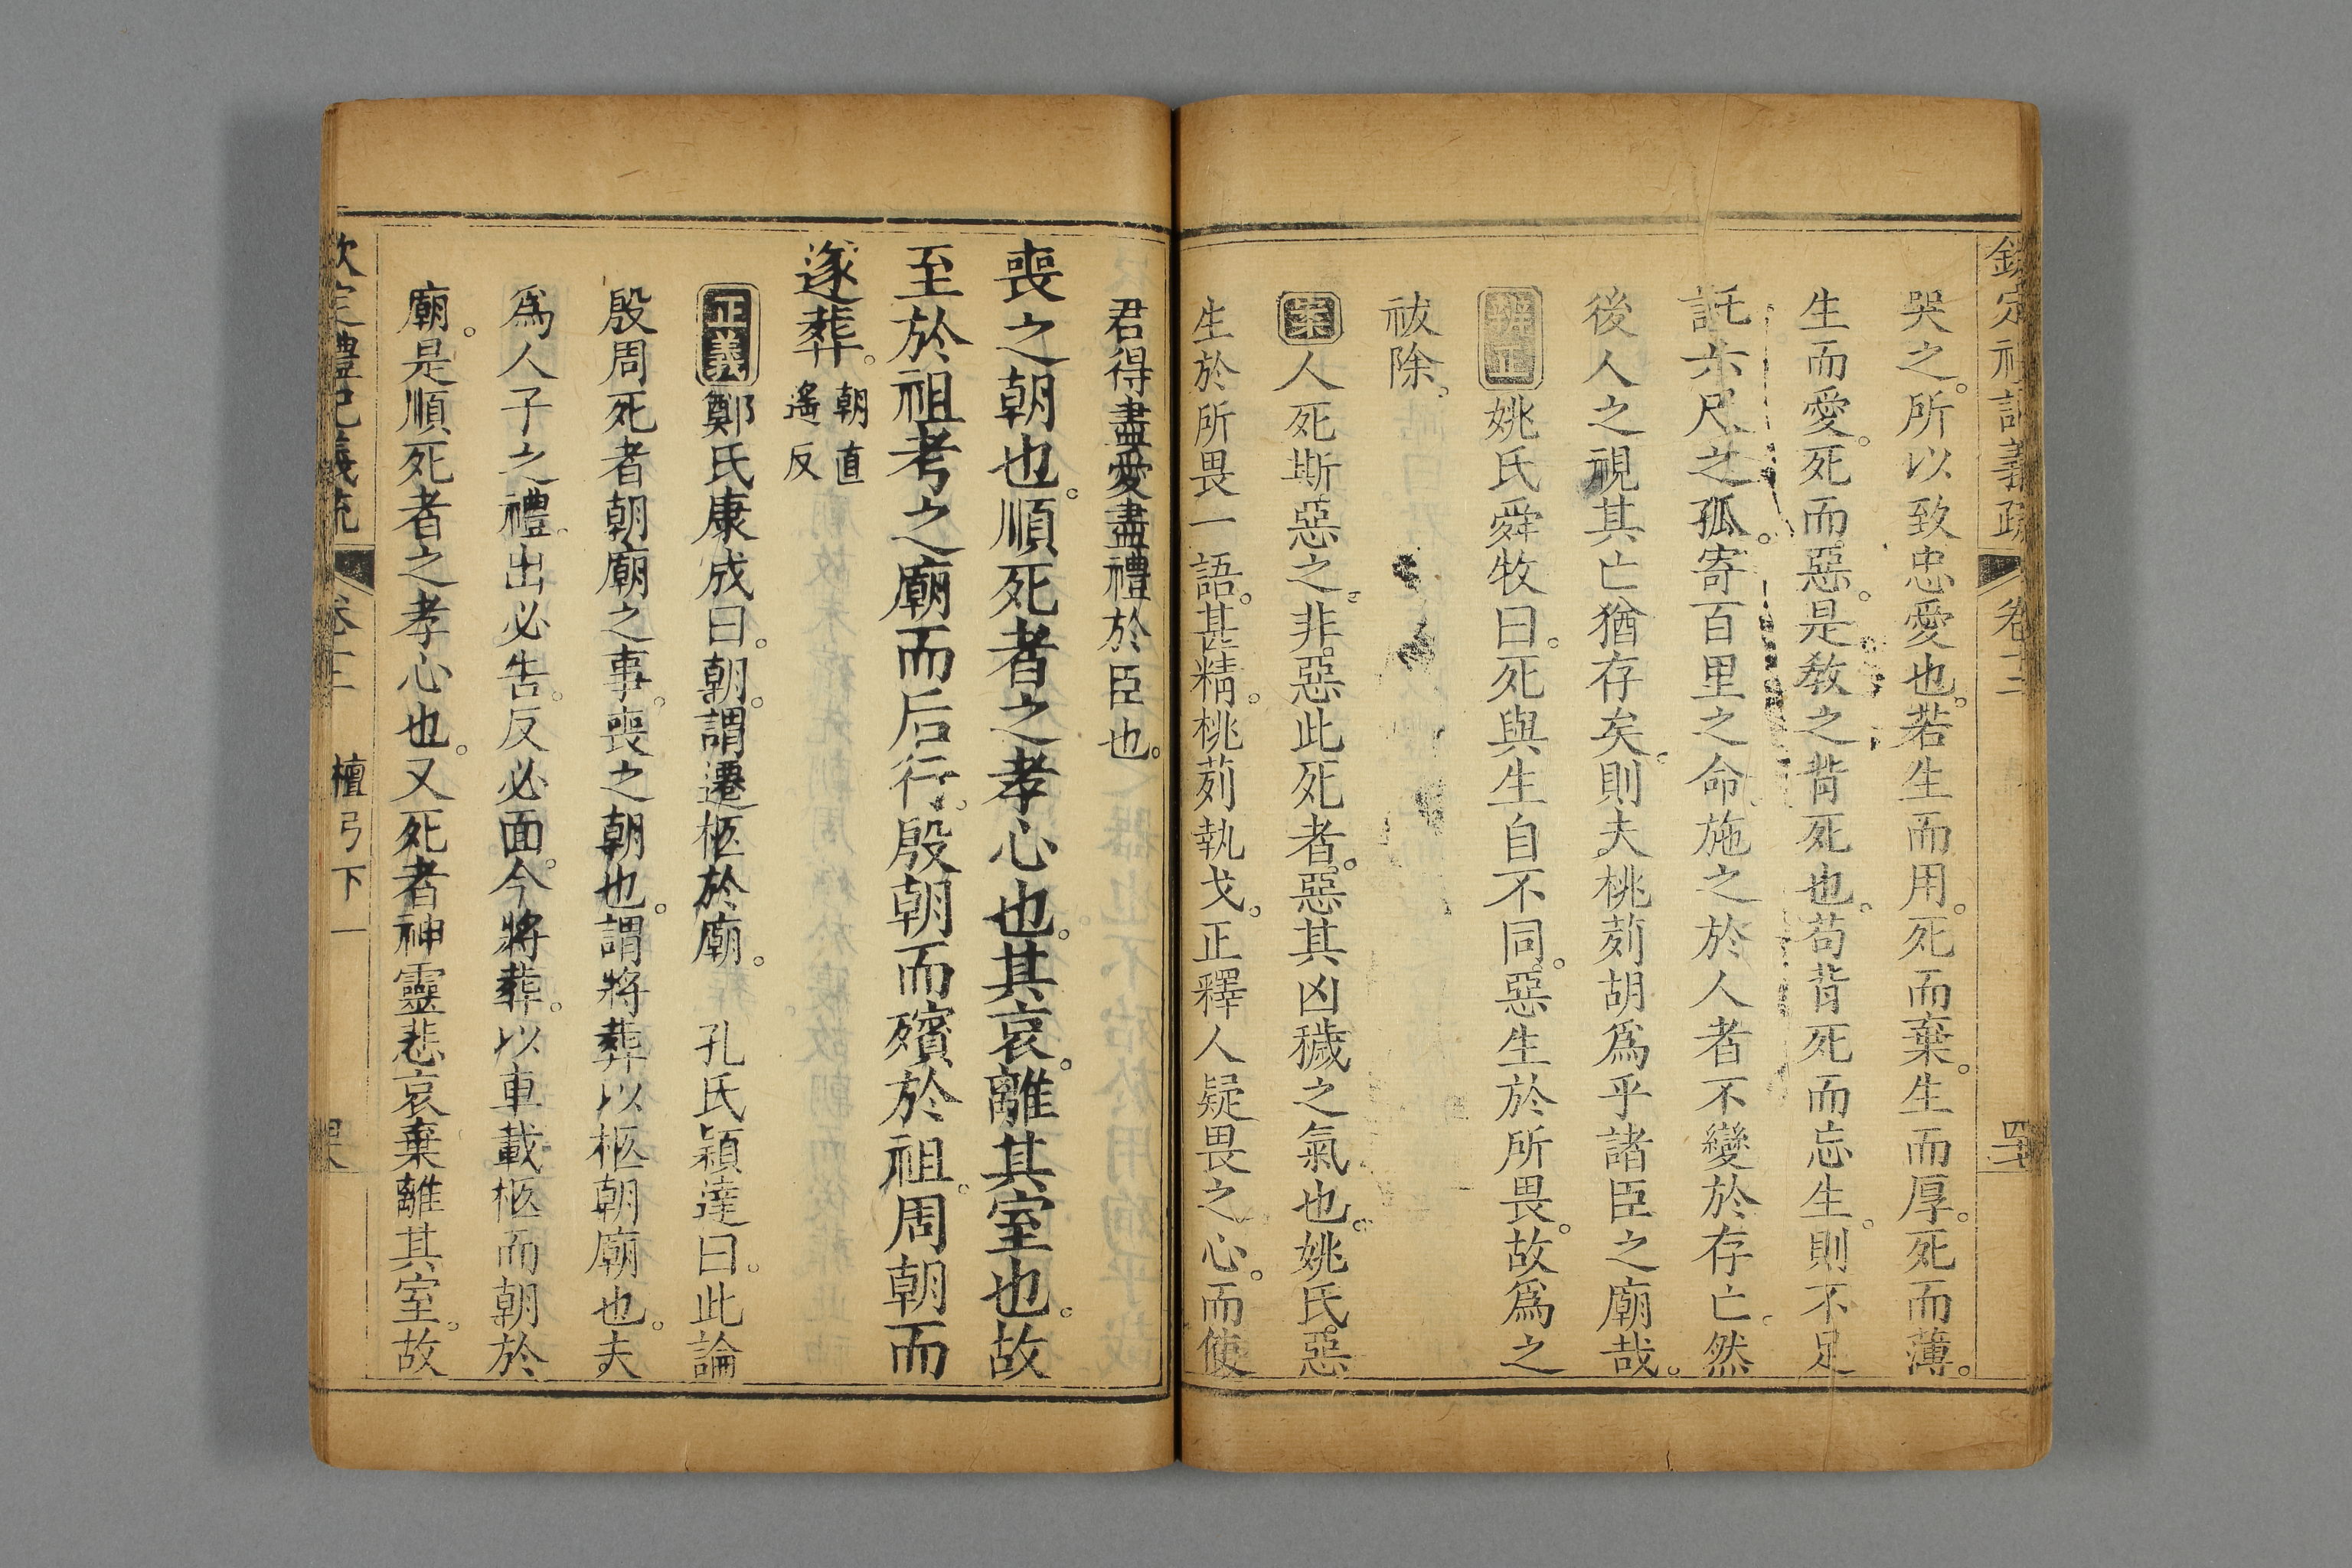 欽定禮記義疏 卷十三
哭之。所以致忠愛也。若生而用。死而棄。生而厚。死而薄。
生而愛。死而惡。是教之背死也。苟背死而忘生。則不足
託六尺之孤。寄百里之命。施之於人者不變於存亡。然
後人之視其亡猶存矣。則夫桃茢胡爲乎諸臣之廟哉。
辨正姚氏舜牧曰。死與生自不同。惡生於所畏。故爲之
祓除。
案人死斯惡之。非惡此死者。惡其凶穢之氣也。姚氏惡
生於所畏一語。甚精。桃茢執戈。正釋人疑畏之心。而使
君得盡愛盡禮於臣也。
喪之朝也。順死者之孝心也。其哀。離其室也。故
至於祖考之廟而后行。殷朝而殯於祖。周朝而
遂葬。朝直遙反
正義鄭氏康成曰。朝。謂遷柩於廟。 孔氏穎達曰。此論
殷周死者朝廟之事。喪之朝也。謂將葬以柩朝廟也。夫
爲人子之禮。出必告。反必面。今將葬。以車載柩而朝於
廟。是順死者之孝心也。又死者神靈悲哀棄離其室。故
欽定禮記義疏 卷十三 檀弓下一